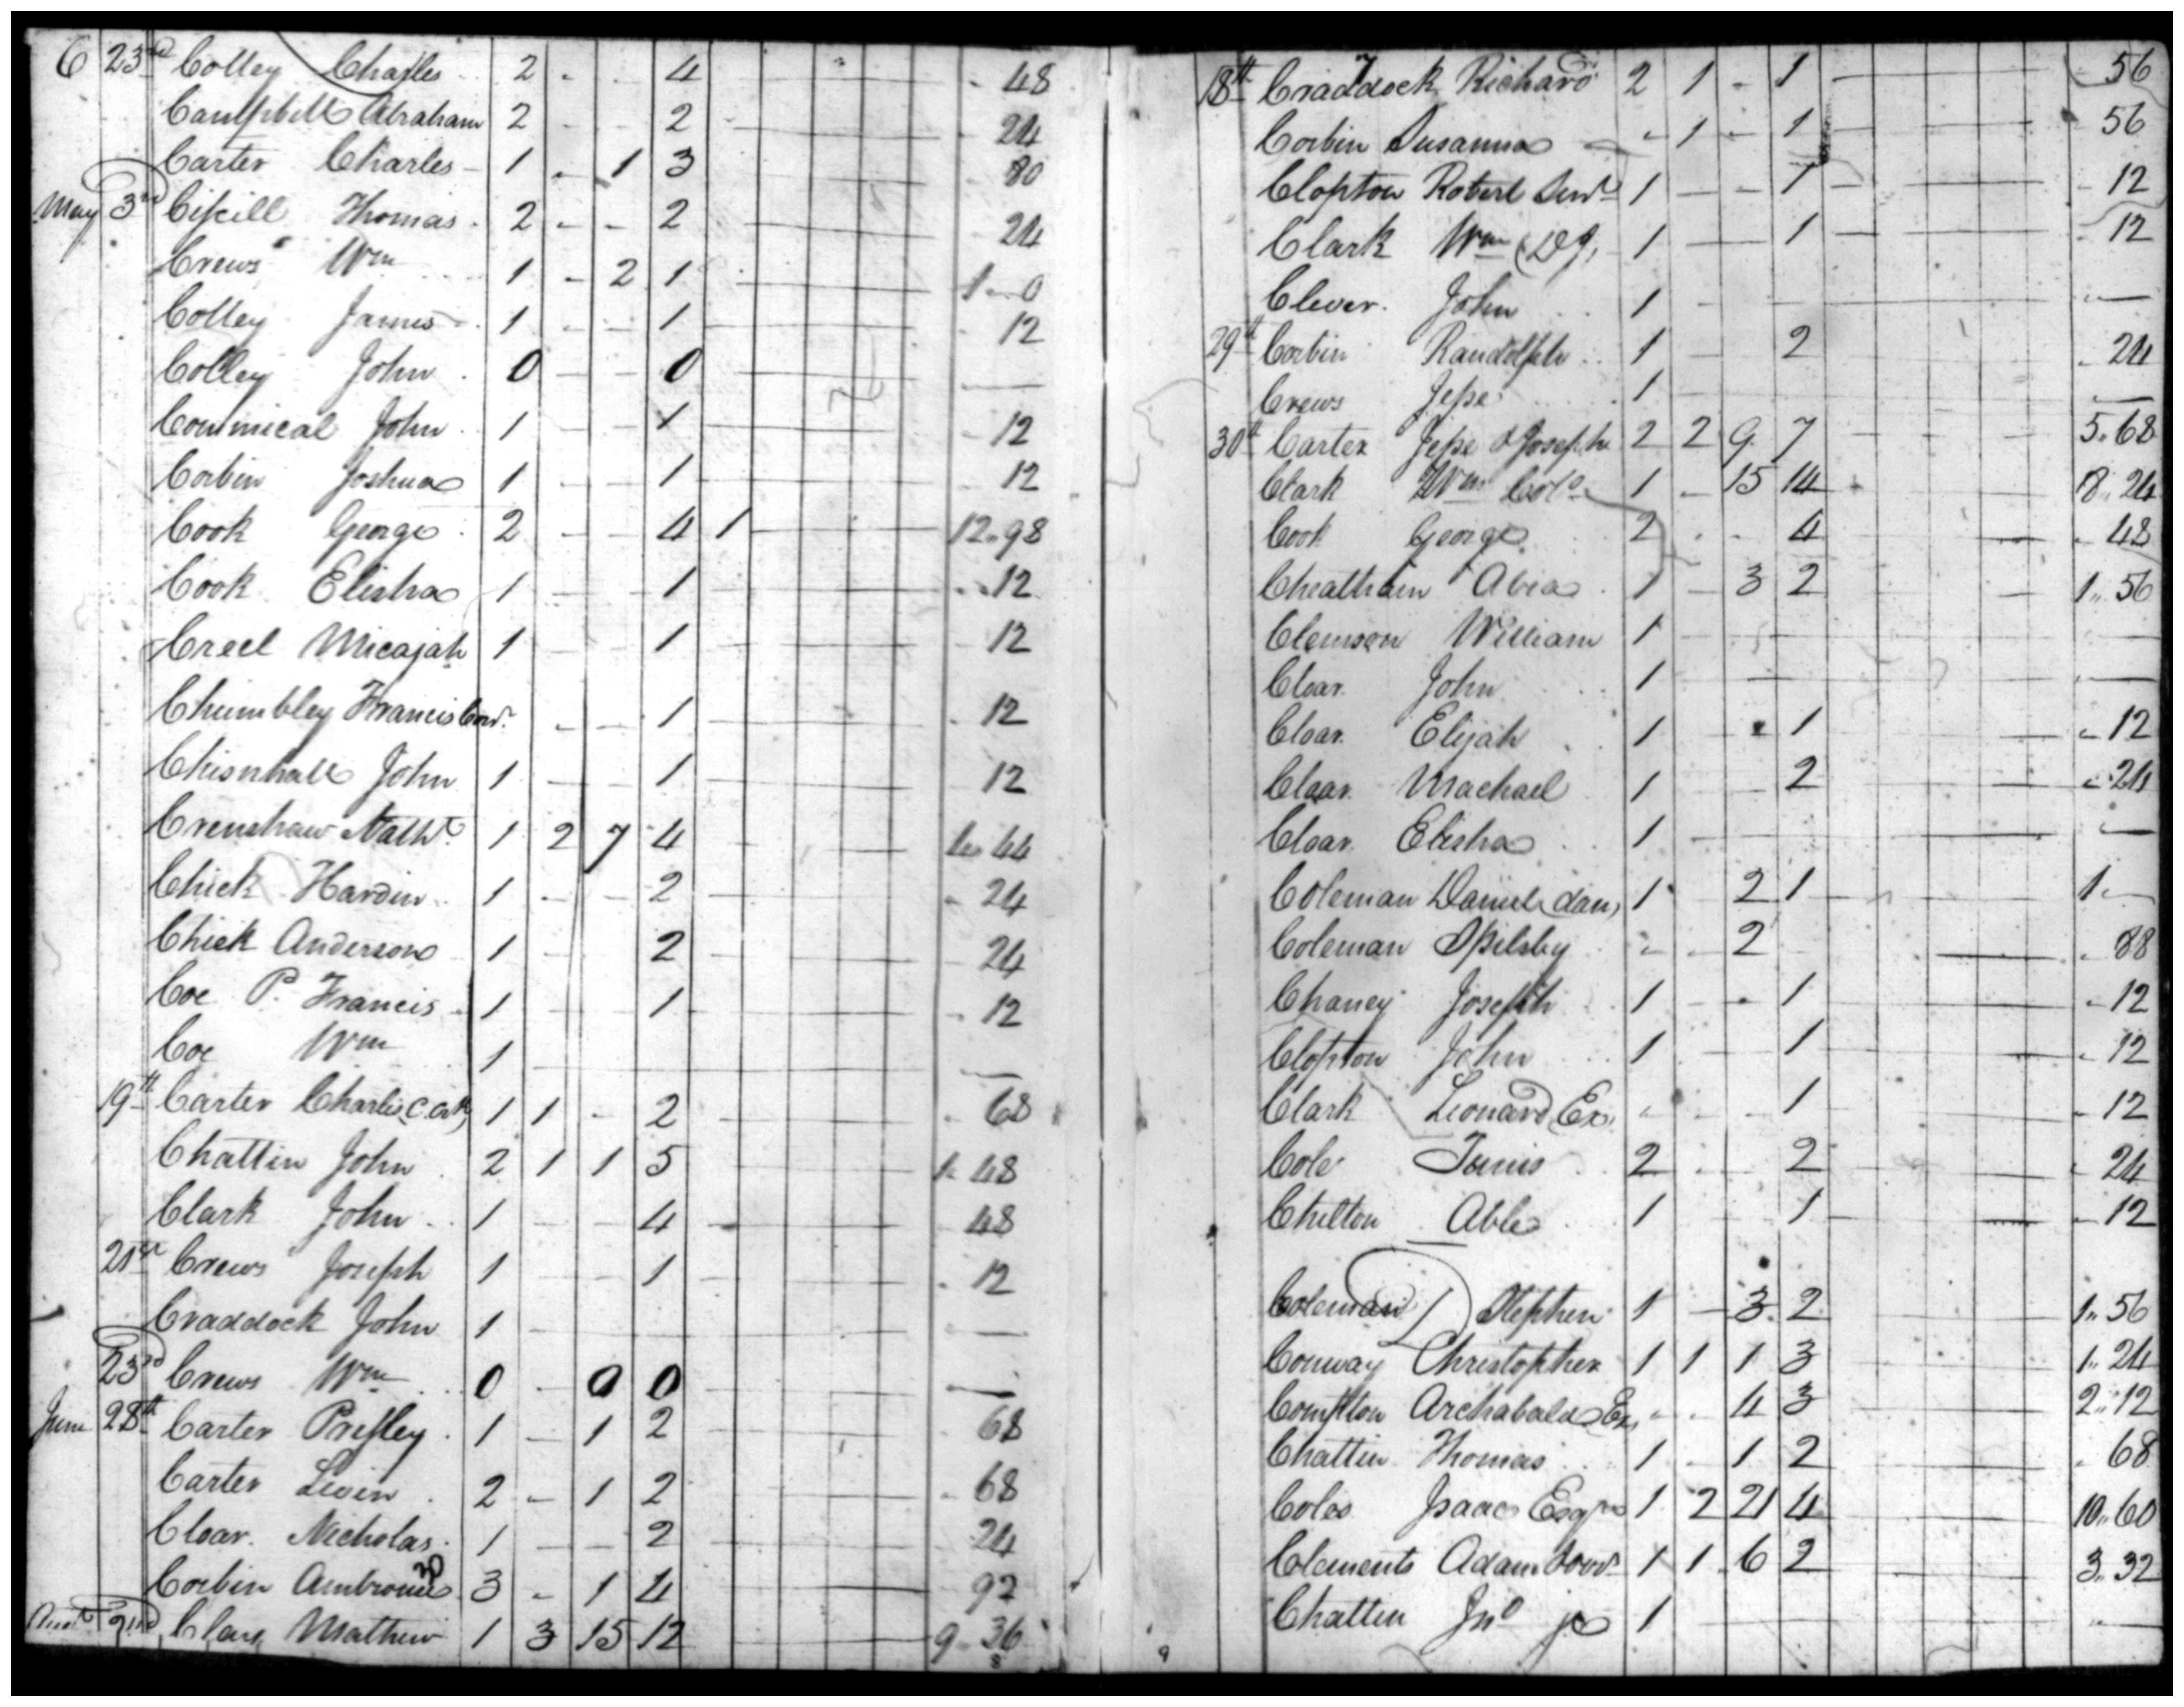 6 23rd Colley Charles 2 - - 4 - 48
Caulpbell Abraham 2 - - 2 - 24
Carter Charles - 1 - 1 3 - 80
May 3rd Cifsill Thomas 2 - - 2 - 24
Crews Wm 1 - 2 1 1 - 0
Colley James 1 - - 1 - 12
Colley John 0 - - 0 -
Commical John 1 - - 1 - 12
Corbin Joshua 1 - - 1 - 12
Cook George 2 - - 4 1 12 - 98
Cook Elisha 1 - - 1 - 12
Creel Micajah 1 - - 1 - 12
Chumbley Francis - - 1 - 12
Chisnhall John 1 - - 1 - 12
Crenshaw Nathl 1 2 7 4 4 - 44
Chick Hardin 1 - - 2 - 24
Chick Anderson 1 - - 2 - 24
Coe P. Francis 1 - - 1 - 12
Coe Wm 1 -
19th Carter Charles (C. Crk) 1 1 - 2 - 68
Chattin John 2 1 1 5 1 - 48
Clark John 1 - - 4 - 48
21st Crews Joseph 1 - - 1 - 12
Craddock John 1 -
23rd Crews Wm 0 - 0 0 -
June 28th Carter Presley 1 - 1 2 - 68
Carter Levin 2 - 1 2 - 68
Cloar Nicholas 1 - - 2 - 24
Corbin Ambrouse 30 3 - 1 4 - 92
2nd Clay Mathew 1 3 15 12 9 - 36
18th Craddock Richard 2 1 - 1 - 56
Corbin Susanna - 1 - 1 - 56
Clopton Robert Senr 1 - - 1 - 12
Clark Wm 1 - - 1 - 12
Clever John 1 -
29th Corbin Randolph 1 - 2 - 24
Crews Jesse 1 -
30th Carter Jesse & Joseph 2 2 9 7 5 " 68
Clark Wm Colo 1 - 15 14 8 " 24
Cook George 2 - - 4 - 48
Cheatham Abia 1 - 3 2 1 " 56
Clemson William 1 -
Cloar John 1 -
Cloar Elijah 1 - - 1 - 12
Cloar Machael 1 - - 2 - 24
Cloar Elisha 1 -
Coleman Daniel (dan) 1 2 1 1 " -
Coleman Spilsby - - 2 - 88
Chaney Joseph 1 - - 1 - 12
Clopton John 1 - - 1 - 12
Clark Leonard Ex - - - 1 - 12
Cole Janis 2 - - 2 - 24
Chilton Able 1 - - 1 - 12
Coleman Stephen 1 - 3 2 1 " 56
Conway Christopher 1 1 1 3 1 " 24
Compton Archabald Ex - - 4 3 2 " 12
Chattin Thomas 1 - 1 2 - 68
Coles Isaac Esqr 1 2 21 4 10 " 60
Clements Adam 1 1 6 2 3 " 32
Chattin Jno jr 1 -